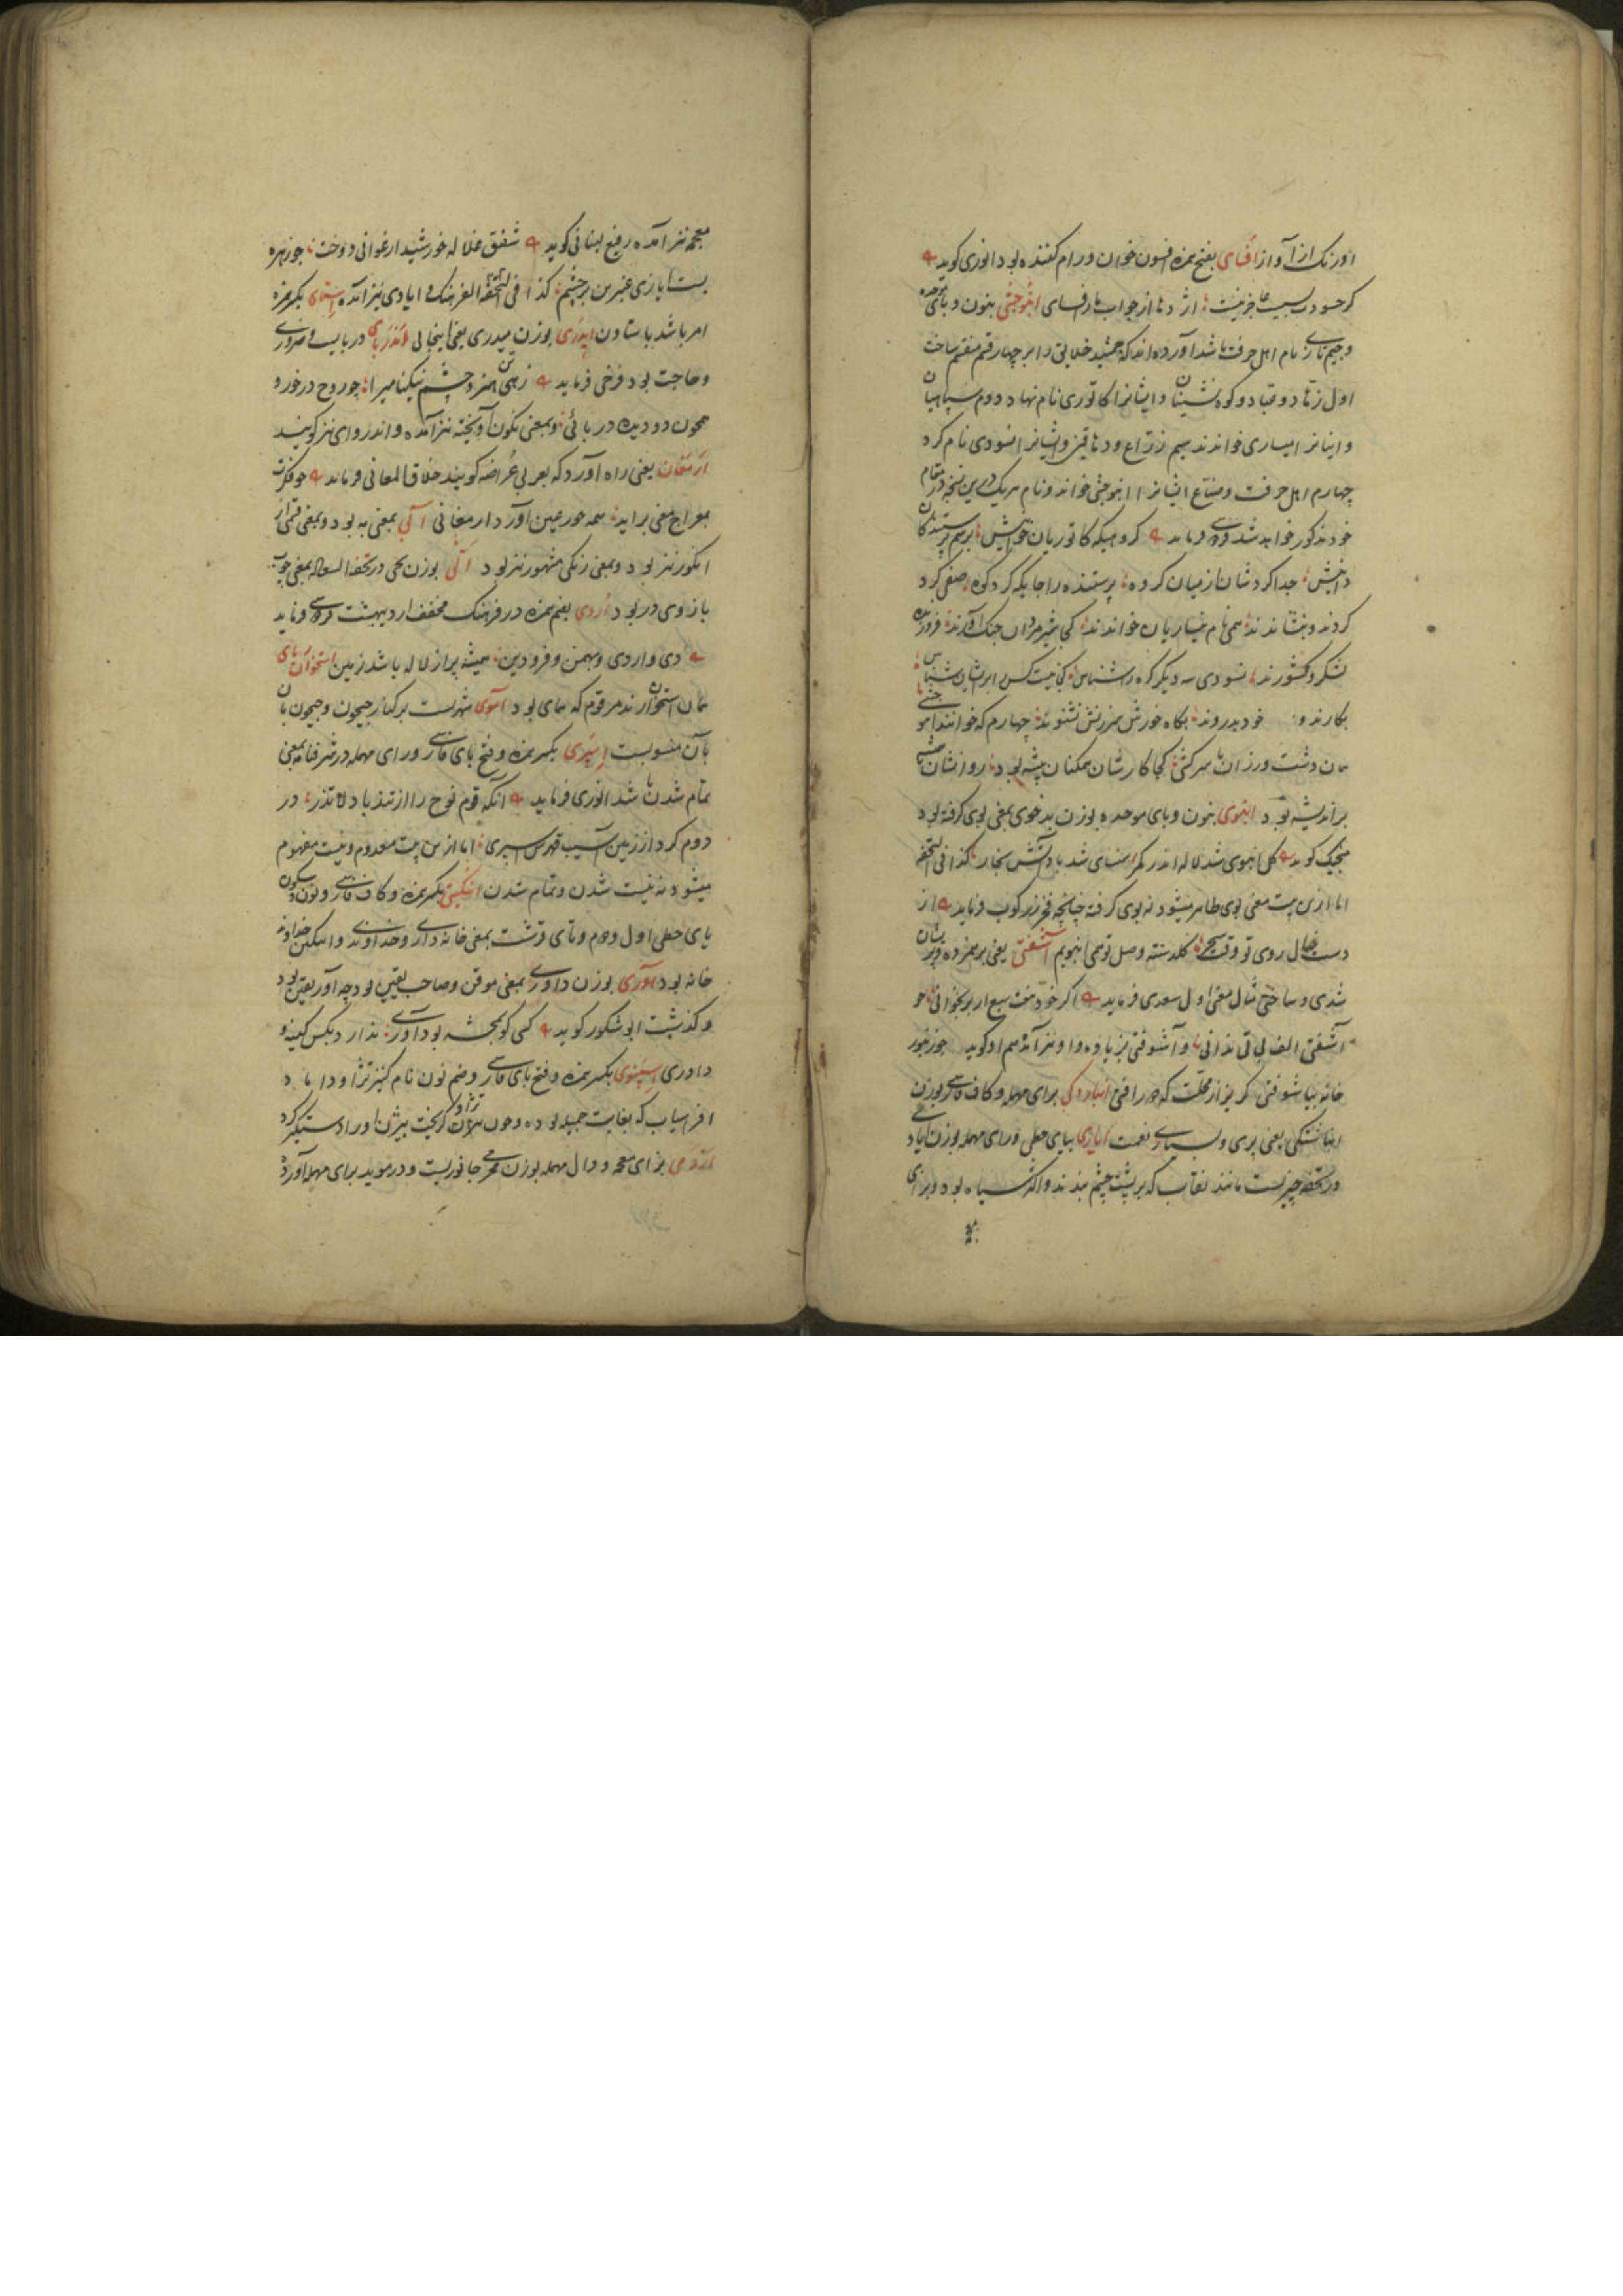 اورنک از آواز افسای بفتح همزه افسون خوان و رام کننده بود انوری کوید
کر حسودت بسیست عاجز نیست اژدها از جواب مارافسای انبوجی بنون و بای موحده
و جیم تازی نام اهل حرفت باشد آورده اند که جمشید خلایق را بر چهار قسم منقسم ساخت
اول زهاد و عباد و کوه نشینان و ایشانرا کاتوری نام نهاد دوم سپاهیان
و ایشانرا نیساری خواندند سیم زراع و دهاقین و ایشانرا نسودی نام کرد
چهارم اهل حرفت و صناع ایشانرا انبوجی خواند و نام هریک درین نسخه در مقام
خود مذکور خواهد شد فردوسی فرماید کروهیکه کاتوریان خوانیش برسم پرستندکان
دانیش جدا کردشان از میان کروه پرستنده را جایکه کرد کوه صفی کرد
کردند و بنشاندند همی نام نیساریان خواندند کجا شیر مردان جنک آورند فروزنده
لشکر و کشورند نسودی سه دیکر کره را شناس کجا نیست کس را بر ایشان سپاس
بکارند و خود بدروند بکاه خورش سرزنش نشنوند چهارم که خوانند انبوجی
همان دست ورزان با سرکشی کجا کارشان همکنان پیشه بود روانشان همیشه
پر اندیشه بود انبوی بنون و بای موحده بوزن بدخوی بمعنی بوی کرفته بود
منجیک کوید کل انبوی شد لاله اندر کمر کذا فی التحفه
اما ازین بیت معنی بوی ظاهر میشود نه بوی کرفته چنانچه فخر زرکوب فرماید از
دست خیال روی تو وقت سحر کلدسته وصل تو همی انبویم آشفتی یعنی برهم زده و پریشان
شدی و ساختی مثال معنی اول سعدی فرماید اکر خود هفت سبع از بر بخوانی چو
آشفتی الف بی تی ندانی و آشوفتی بزیاده واو نیز آمده هم او کوید چو زنبور
خانه بیاشوفتی کریز از محلت که در رافتی انباردکی برای مهمله و کاف فارسی بوزن
انباشتکی یعنی پری و بسیاری نعمت ایازی بیای حطی و رای مهمله بوزن ایادی
در تحفه چیزیست مانند نقاب که بر پشت چشم بندند و اکثر سیاه بود و بزای
معجمه نیز آمده رفیع لبنانی کوید شفق غلاله خورشید ارغوانی دوخت چو زهره
بست ایازی عنبرین بر چشم کذا فی التحفه الفرهنک و ایادی نیز آمده ستای بکسر همزه
امر باشد باستادن ایدری بوزن حیدری یعنی اینجایی اندربای دربایست و ضروری
و حاجت بود فرخی فرماید زهی تن هنر و چشم نیکنامی را چو روح درخور و
همچون دو دیده دربائی و بمعنی نکون آویخته نیز آمده و اندروای نیز کویند
ارمغان یعنی راه آورد که بعربی عراضه کویند خلاق المعانی فرماید چو فکرت
بمعراج معنی براید همه حور عین آورد ارمغانی آبی بمعنی به بود و بمعنی قسمی از
انکور نیز بود و بمعنی رنکی مشهور نیز بود آلی بوزن یحی در تحفه السعاده بمعنی چوب
بازوی در بود اردی بضم همزه در فرهنک مخفف اردیبهشت فردوسی فرماید
دی و اردی و بهمن و فرودین همیشه پر از لاله باشد زمین استخوان ربای
همان استخوان رند مرقوم که همای بود آموی شهریست برکنار جیحون و جیحون بان
بآن منسوبست اسپری بکسر همزه و فتح بای فارسی و رای مهمله در شرفنامه بمعنی
تمام شدن باشد انوری فرماید آنکه قوم نوح را از تندباد لاتذر در
دوم کرد از زمین آسیب قهرش اسپری اما ازین بیت معدوم و نیست مفهوم
میشود نه نیست شدن و تمام شدن انکیتی بکسر همزه و کاف فارسی و نون و سکون
یای حطی اول و دوم و تای قرشت بمعنی خانه داری و خداوندی و انکین خداوند
خانه بود آوری بوزن داوری بمعنی موقن و صاحب یقین بود چه آور یقین بود
و کذشت ابوشکور کوید کسی کو بمحشر بود آوری ندارد بکس کینه و
داوری اسپنوی بکسر همزه و فتح بای فارسی و ضم نون نام کنیز تژاو داماد
افراسیاب که بغایت جمیله بوده و چون تژاو کریخت بیژن او را دستکیر کرد
ازدمی بزای معجمه و دال مهمله بوزن محرمی جانوریست و در موید برای مهمله آورده